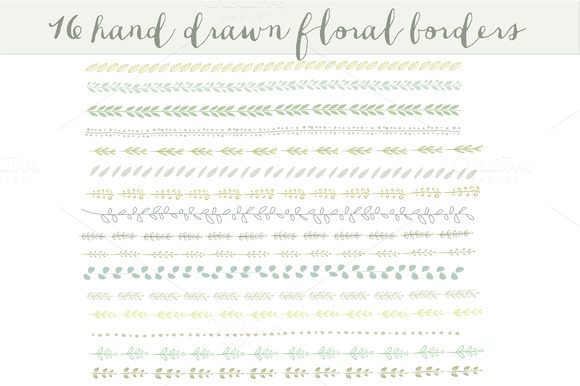 16 hand drawn floral borders